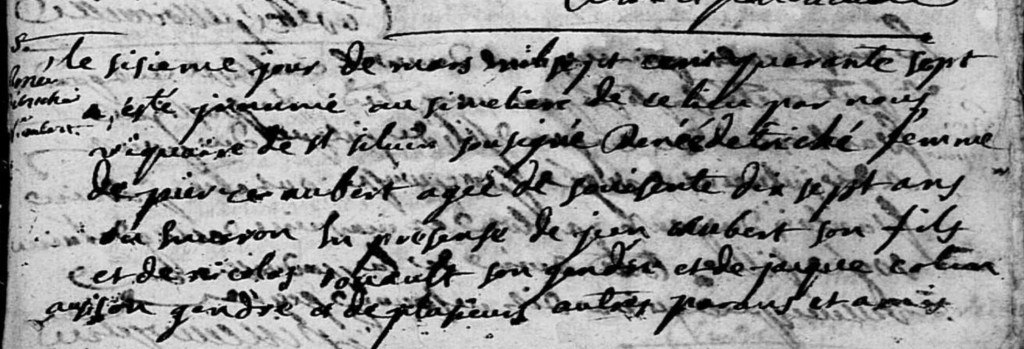 le sisieme jour de mars mil sept cent quarante sept
a esté jnnumé au simetiere de ce lieu par nous
viquaire de st soussigné Renée detriché femme
de pierre aubert agée de souisente dix sept ans
ou environ en presense de jean aubert son fils
et de nicolas son gendre et de jaque
aussy son gendre et de plusieurs autres parans et amis